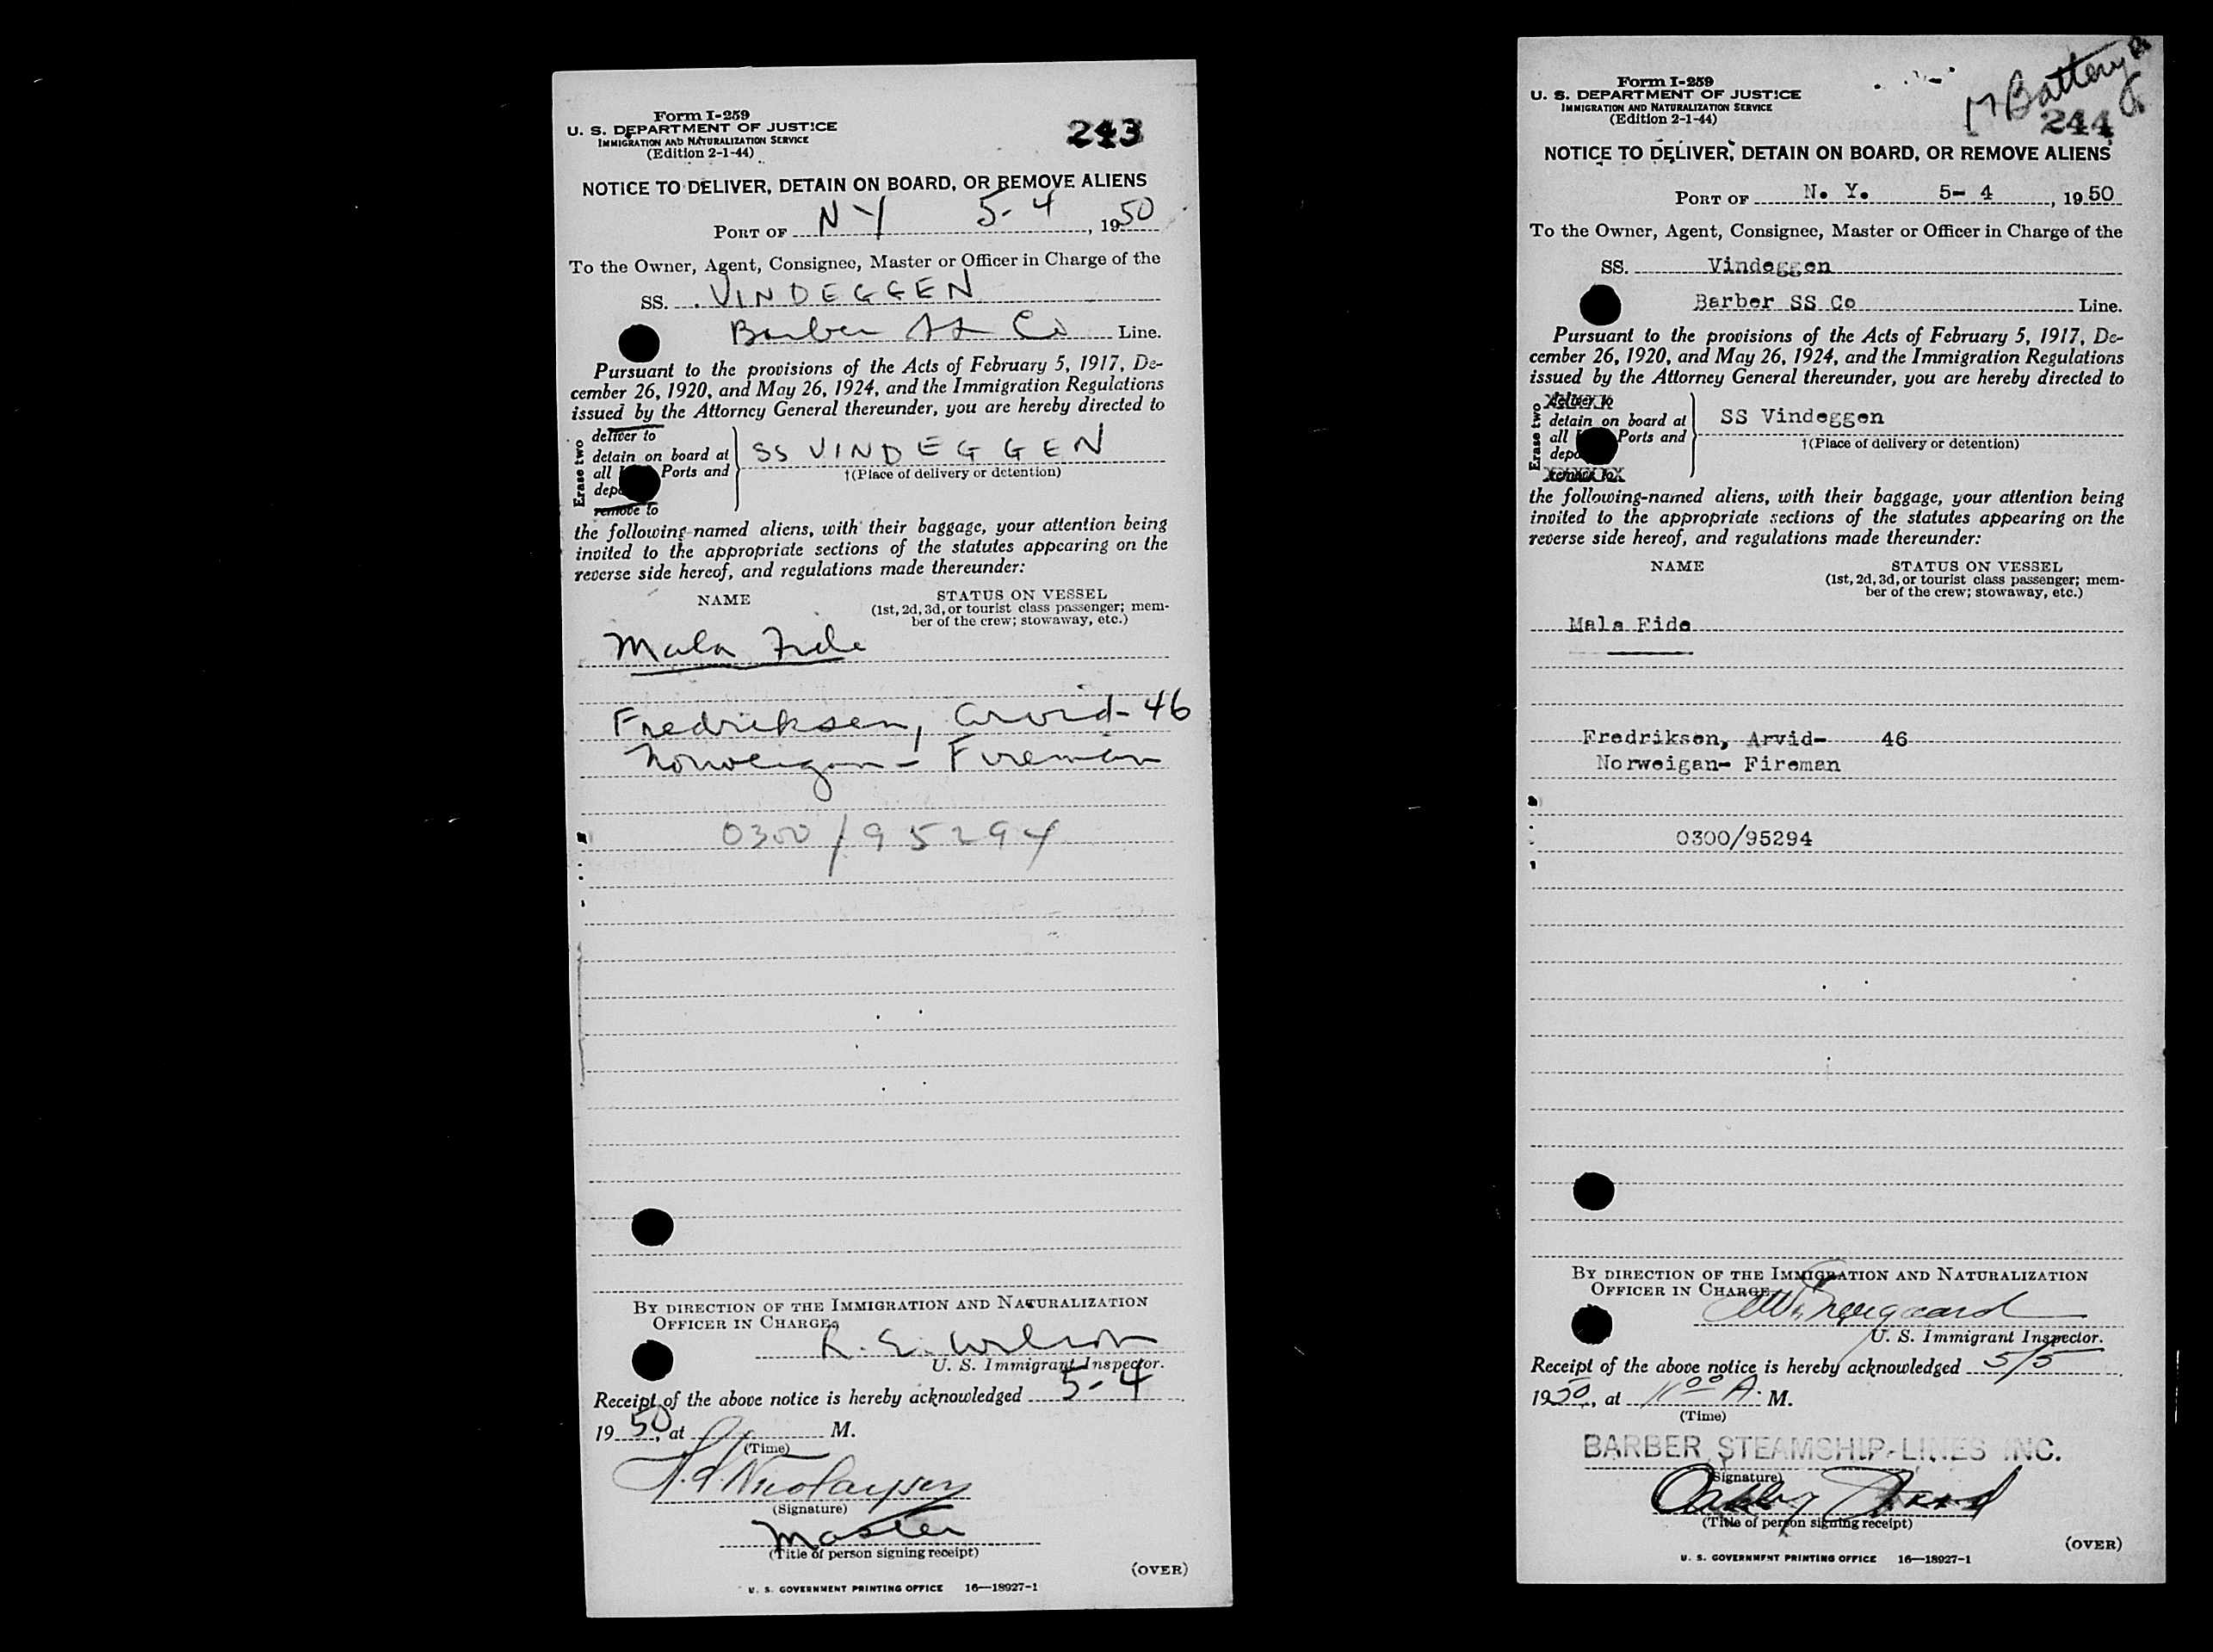 Form I-259
U. S. DEPARTMENT OF JUSTICE
IMMIGRATION AND NATURALIZATION SERVICE
(Edition 2-1-44)
243
NOTICE TO DELIVER, DETAIN ON BOARD, OR REMOVE ALIENS
PORT OF N Y 5-4, 1950
To the Owner, Agent, Consignee, Master or Officer in Charge of the
SS. VINDEGGEN
Barber SS Co Line.
Pursuant to the provisions of the Acts of February 5, 1917, De-
cember 26, 1920, and May 26, 1924, and the Immigration Regulations
issued by the Attorney General thereunder, you are hereby directed to
Erase two
deliver to
detain on board at
all Ports and
remove to
SS VINDEGGEN
†(Place of delivery or detention)
the following-named aliens, with their baggage, your attention being
invited to the appropriate sections of the statutes appearing on the
reverse side hereof, and regulations made thereunder:
NAME
STATUS ON VESSEL
(1st, 2d, 3d, or tourist class passenger; mem-
ber of the crew; stowaway, etc.)
Mala Fide
Fredriksen, Arvid- 46
Norweigan- Fireman
0300/95294
BY DIRECTION OF THE IMMIGRATION AND NATURALIZATION
OFFICER IN CHARGE,
R. E. Wilson
U. S. Immigrant Inspector.
Receipt of the above notice is hereby acknowledged 5-4
1950, at M.
(Time)
Nicolaysen
(Signature)
Master
(Title of person signing receipt)
(OVER)
U. S. GOVERNMENT PRINTING OFFICE 16—18927-1
Form I-259
U. S. DEPARTMENT OF JUSTICE
IMMIGRATION AND NATURALIZATION SERVICE
(Edition 2-1-44)
17 Battery
244
NOTICE TO DELIVER, DETAIN ON BOARD, OR REMOVE ALIENS
PORT OF N. Y. 5- 4, 1950
To the Owner, Agent, Consignee, Master or Officer in Charge of the
SS. Vindeggen
Barber SS Co Line.
Pursuant to the provisions of the Acts of February 5, 1917, De-
cember 26, 1920, and May 26, 1924, and the Immigration Regulations
issued by the Attorney General thereunder, you are hereby directed to
Erase two
deliver to
detain on board at
all Ports and
remove to
SS Vindeggen
†(Place of delivery or detention)
the following-named aliens, with their baggage, your attention being
invited to the appropriate sections of the statutes appearing on the
reverse side hereof, and regulations made thereunder:
NAME
STATUS ON VESSEL
(1st, 2d, 3d, or tourist class passenger; mem-
ber of the crew; stowaway, etc.)
Mala Fide
Fredriksen, Arvid- 46
Norweigan- Fireman
0300/95294
BY DIRECTION OF THE IMMIGRATION AND NATURALIZATION
OFFICER IN CHARGE,
U. S. Immigrant Inspector.
Receipt of the above notice is hereby acknowledged 5/5
1950, at 11 00 A. M.
(Time)
BARBER STEAMSHIP LINES INC.
(Signature)
(Title of person signing receipt)
(OVER)
U. S. GOVERNMENT PRINTING OFFICE 16—18927-1